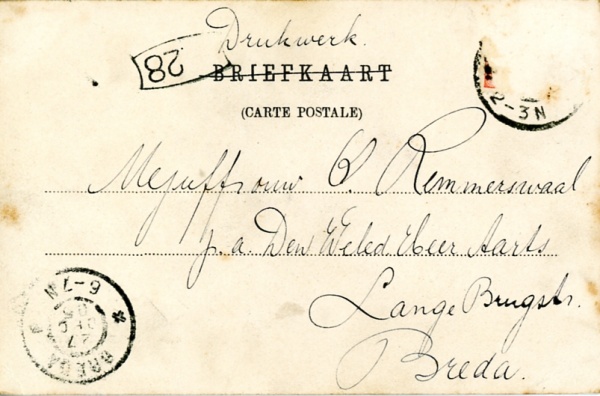 Drukwerk.
28
BRIEFKAART
(CARTE POSTALE)
2-3N
Mejuffrouw C. Remmerswaal
p. a. Den Weled. Heer Aarts
Lange Brugstr.
Breda.
6-7N
BREDA